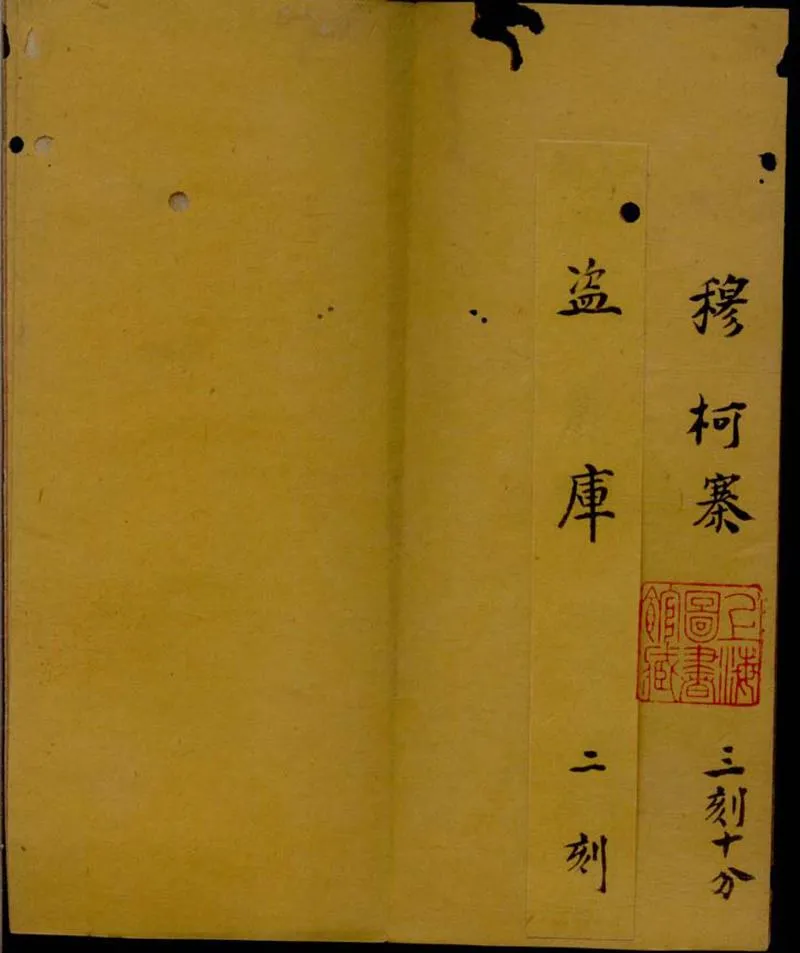 穆柯寨 三刻十分
盗庫 二刻
上海
圖書
館藏